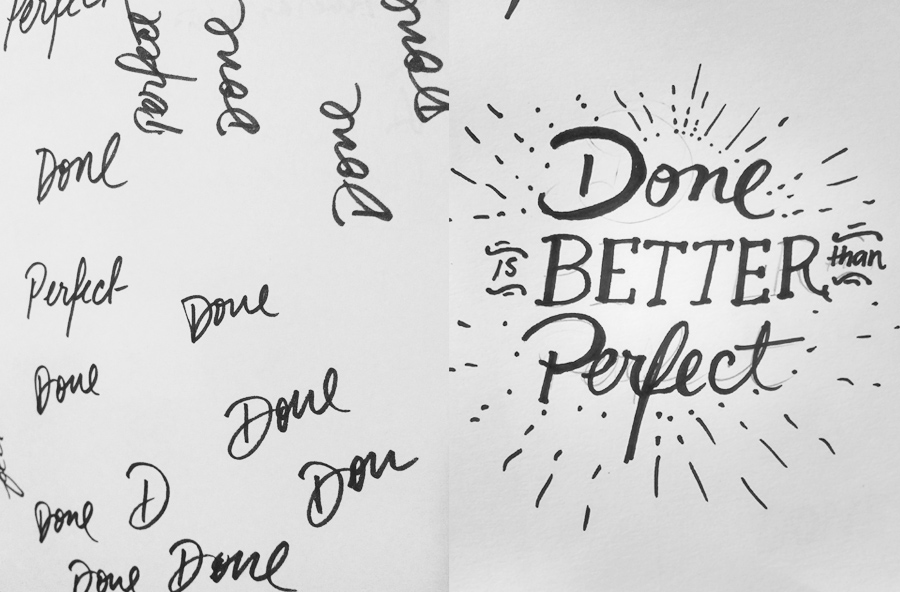 Perfect
Perfect
Done
Done
Done
Done
Perfect
Done
Done
Done
Don
Done
D
Done
Done
Done
is BETTER than
Perfect